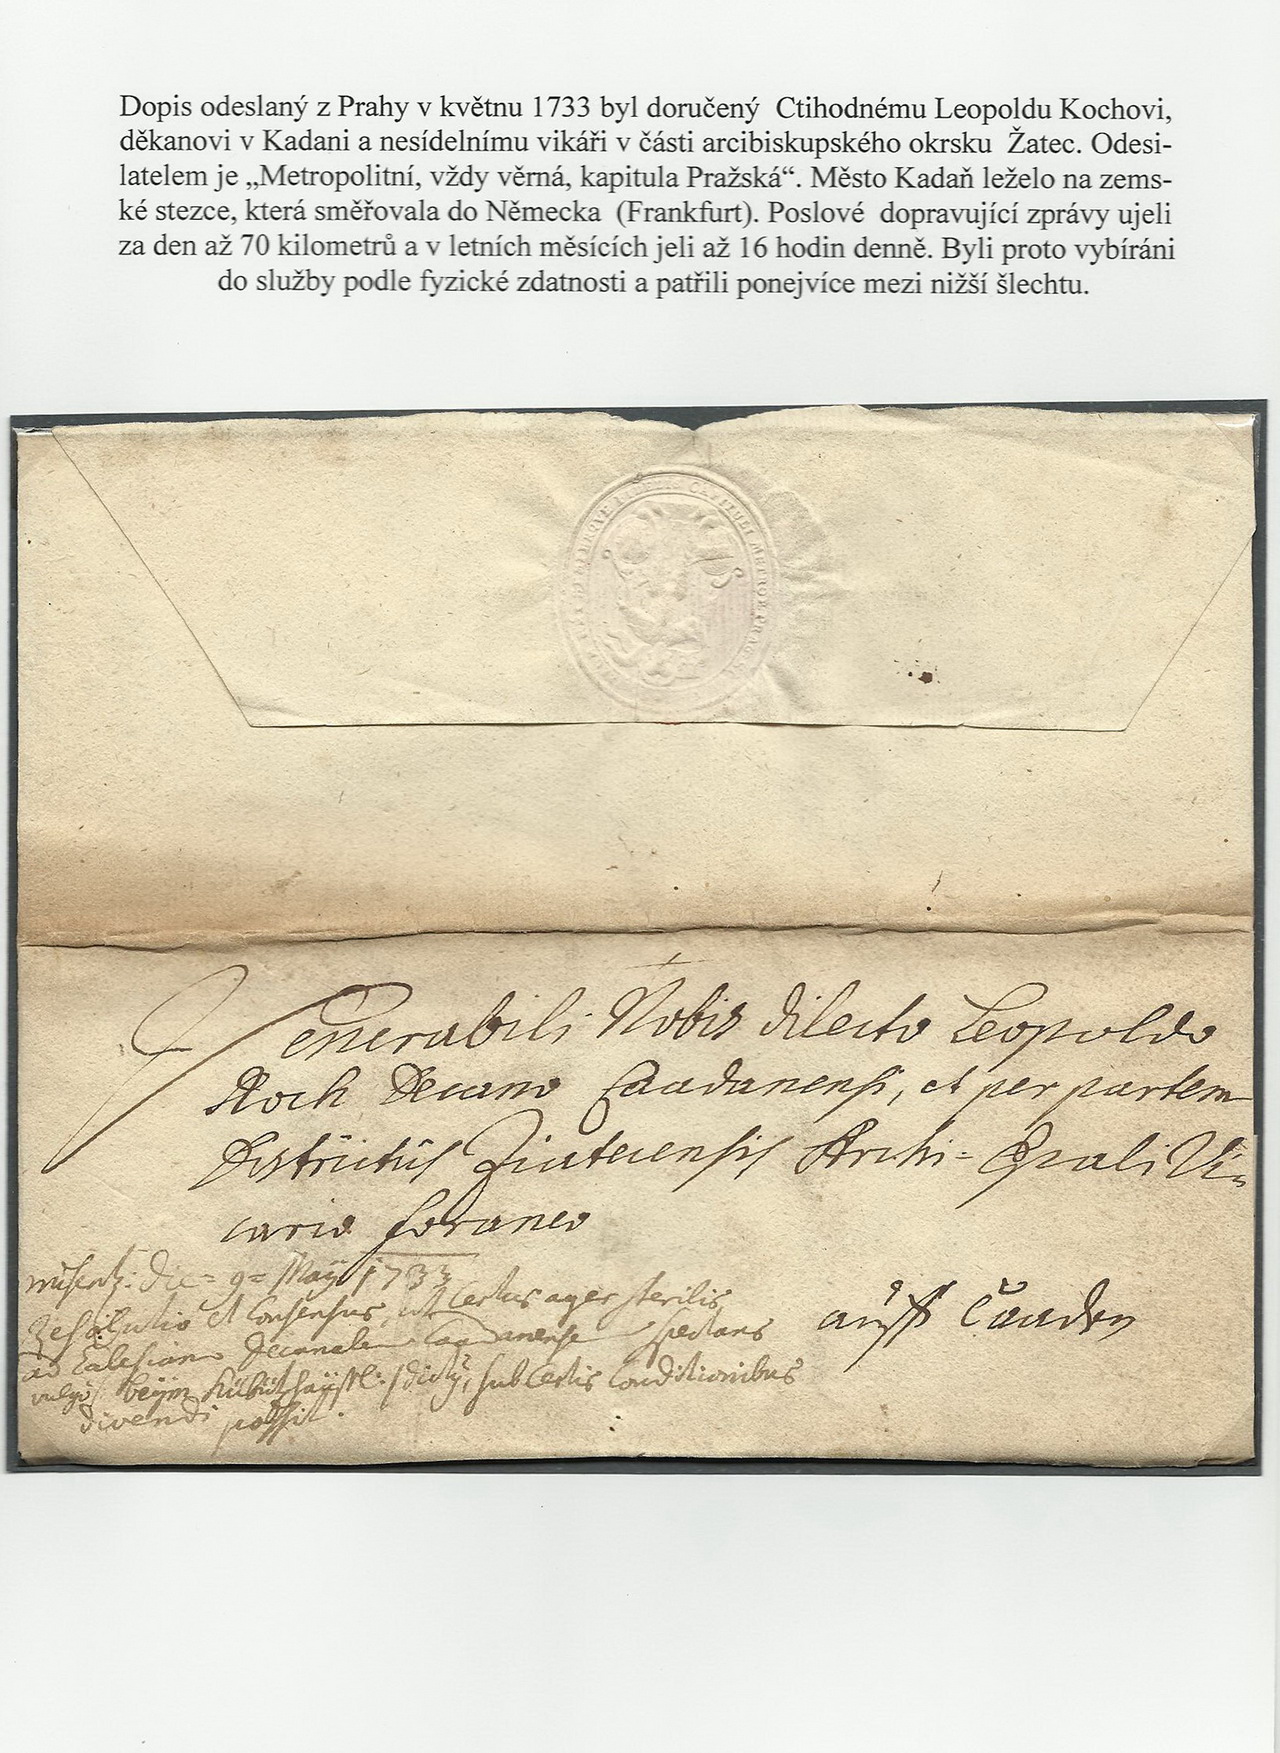 Dopis odeslaný z Prahy v květnu 1733 byl doručený Ctihodnému Leopoldu Kochovi,
děkanovi v Kadani a nesídelnímu vikáři v části arcibiskupského okrsku Žatec. Odesi-
latelem je „Metropolitní, vždy věrná, kapitula Pražská“. Město Kadaň leželo na zems-
ké stezce, která směřovala do Německa (Frankfurt). Poslové dopravující zprávy ujeli
za den až 70 kilometrů a v letních měsících jeli až 16 hodin denně. Byli proto vybíráni
do služby podle fyzické zdatnosti a patřili ponejvíce mezi nižší šlechtu.
CAPITULI METROP: PRAG
Venerabili Nobis dilecto Leopoldo
Koch Decano Caadanensi, et per partem
Districtus Ziatecensis Archi-Epali Vi=
cario foraneo
die = 9 = Maÿ 1733
et Consensus, ut certus ager sterilis
ad Decanalem Caadanensem spectans
vulgo beÿm sub certis Conditionibus
divendi possit.
auff Caaden